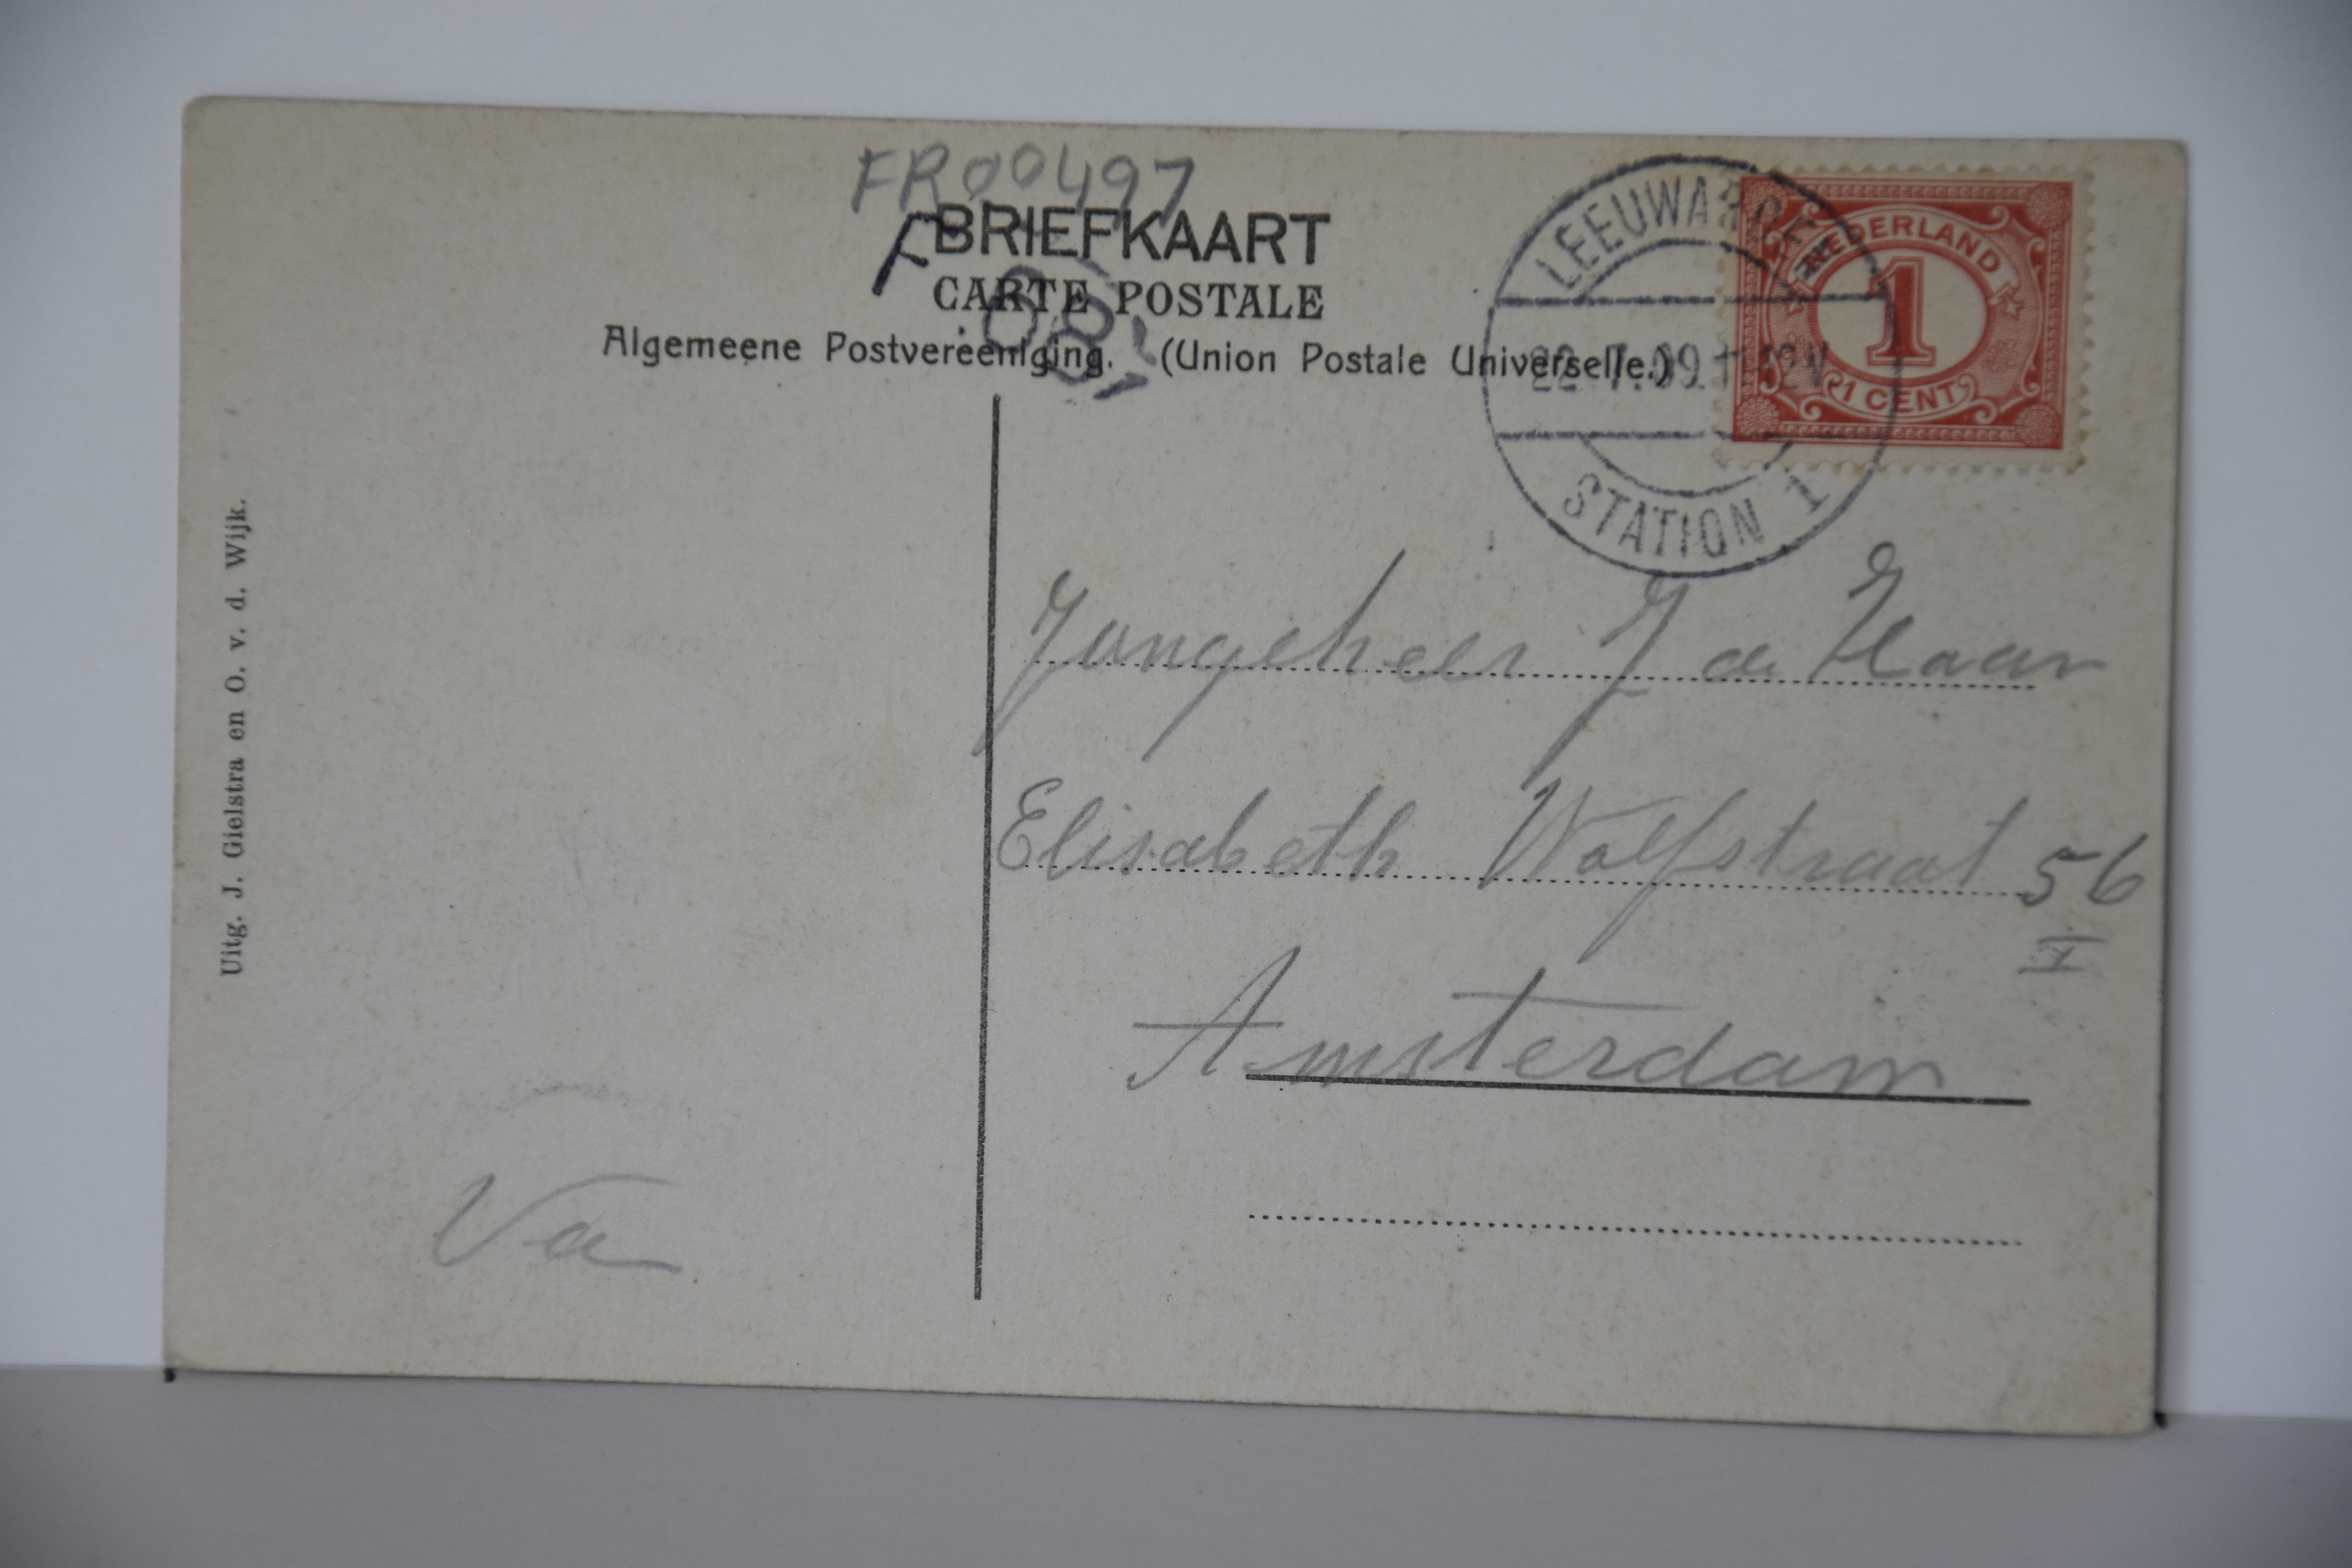 FR00497
F BRIEFKAART
CARTE POSTALE
Algemeene Postvereeniging. (Union Postale Universelle.)
LEEUWARDEN
22.7.09.11-12V
STATION 1
NEDERLAND
1
1 CENT
Uitg. J. Gielstra en O. v. d. Wijk.
Jongeheer J de Haan
Elisabeth Wolfstraat 56
I
Amsterdam
Va